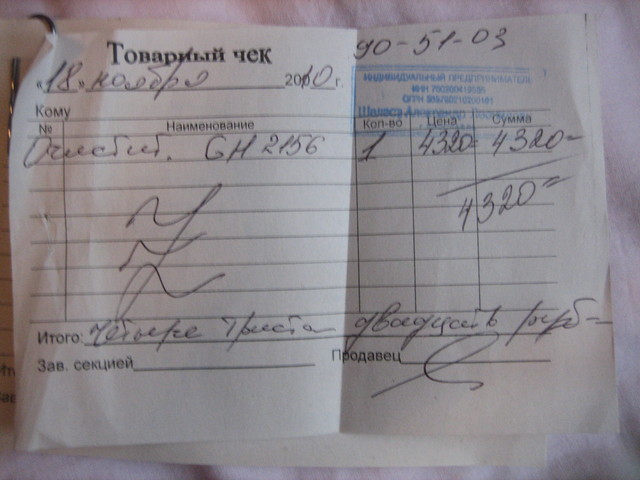 Товарный чек 90-51-03
«18» ноября 2010 г.
ИНДИВИДУАЛЬНЫЙ ПРЕДПРИНИМАТЕЛЬ
ИНН
ОГРН
Кому
№ Наименование Кол-во Цена Сумма
Очистит. GH 2156 1 4320= 4320=
4320=
Итого: четыре триста двадцать руб=
Зав. секцией Продавец